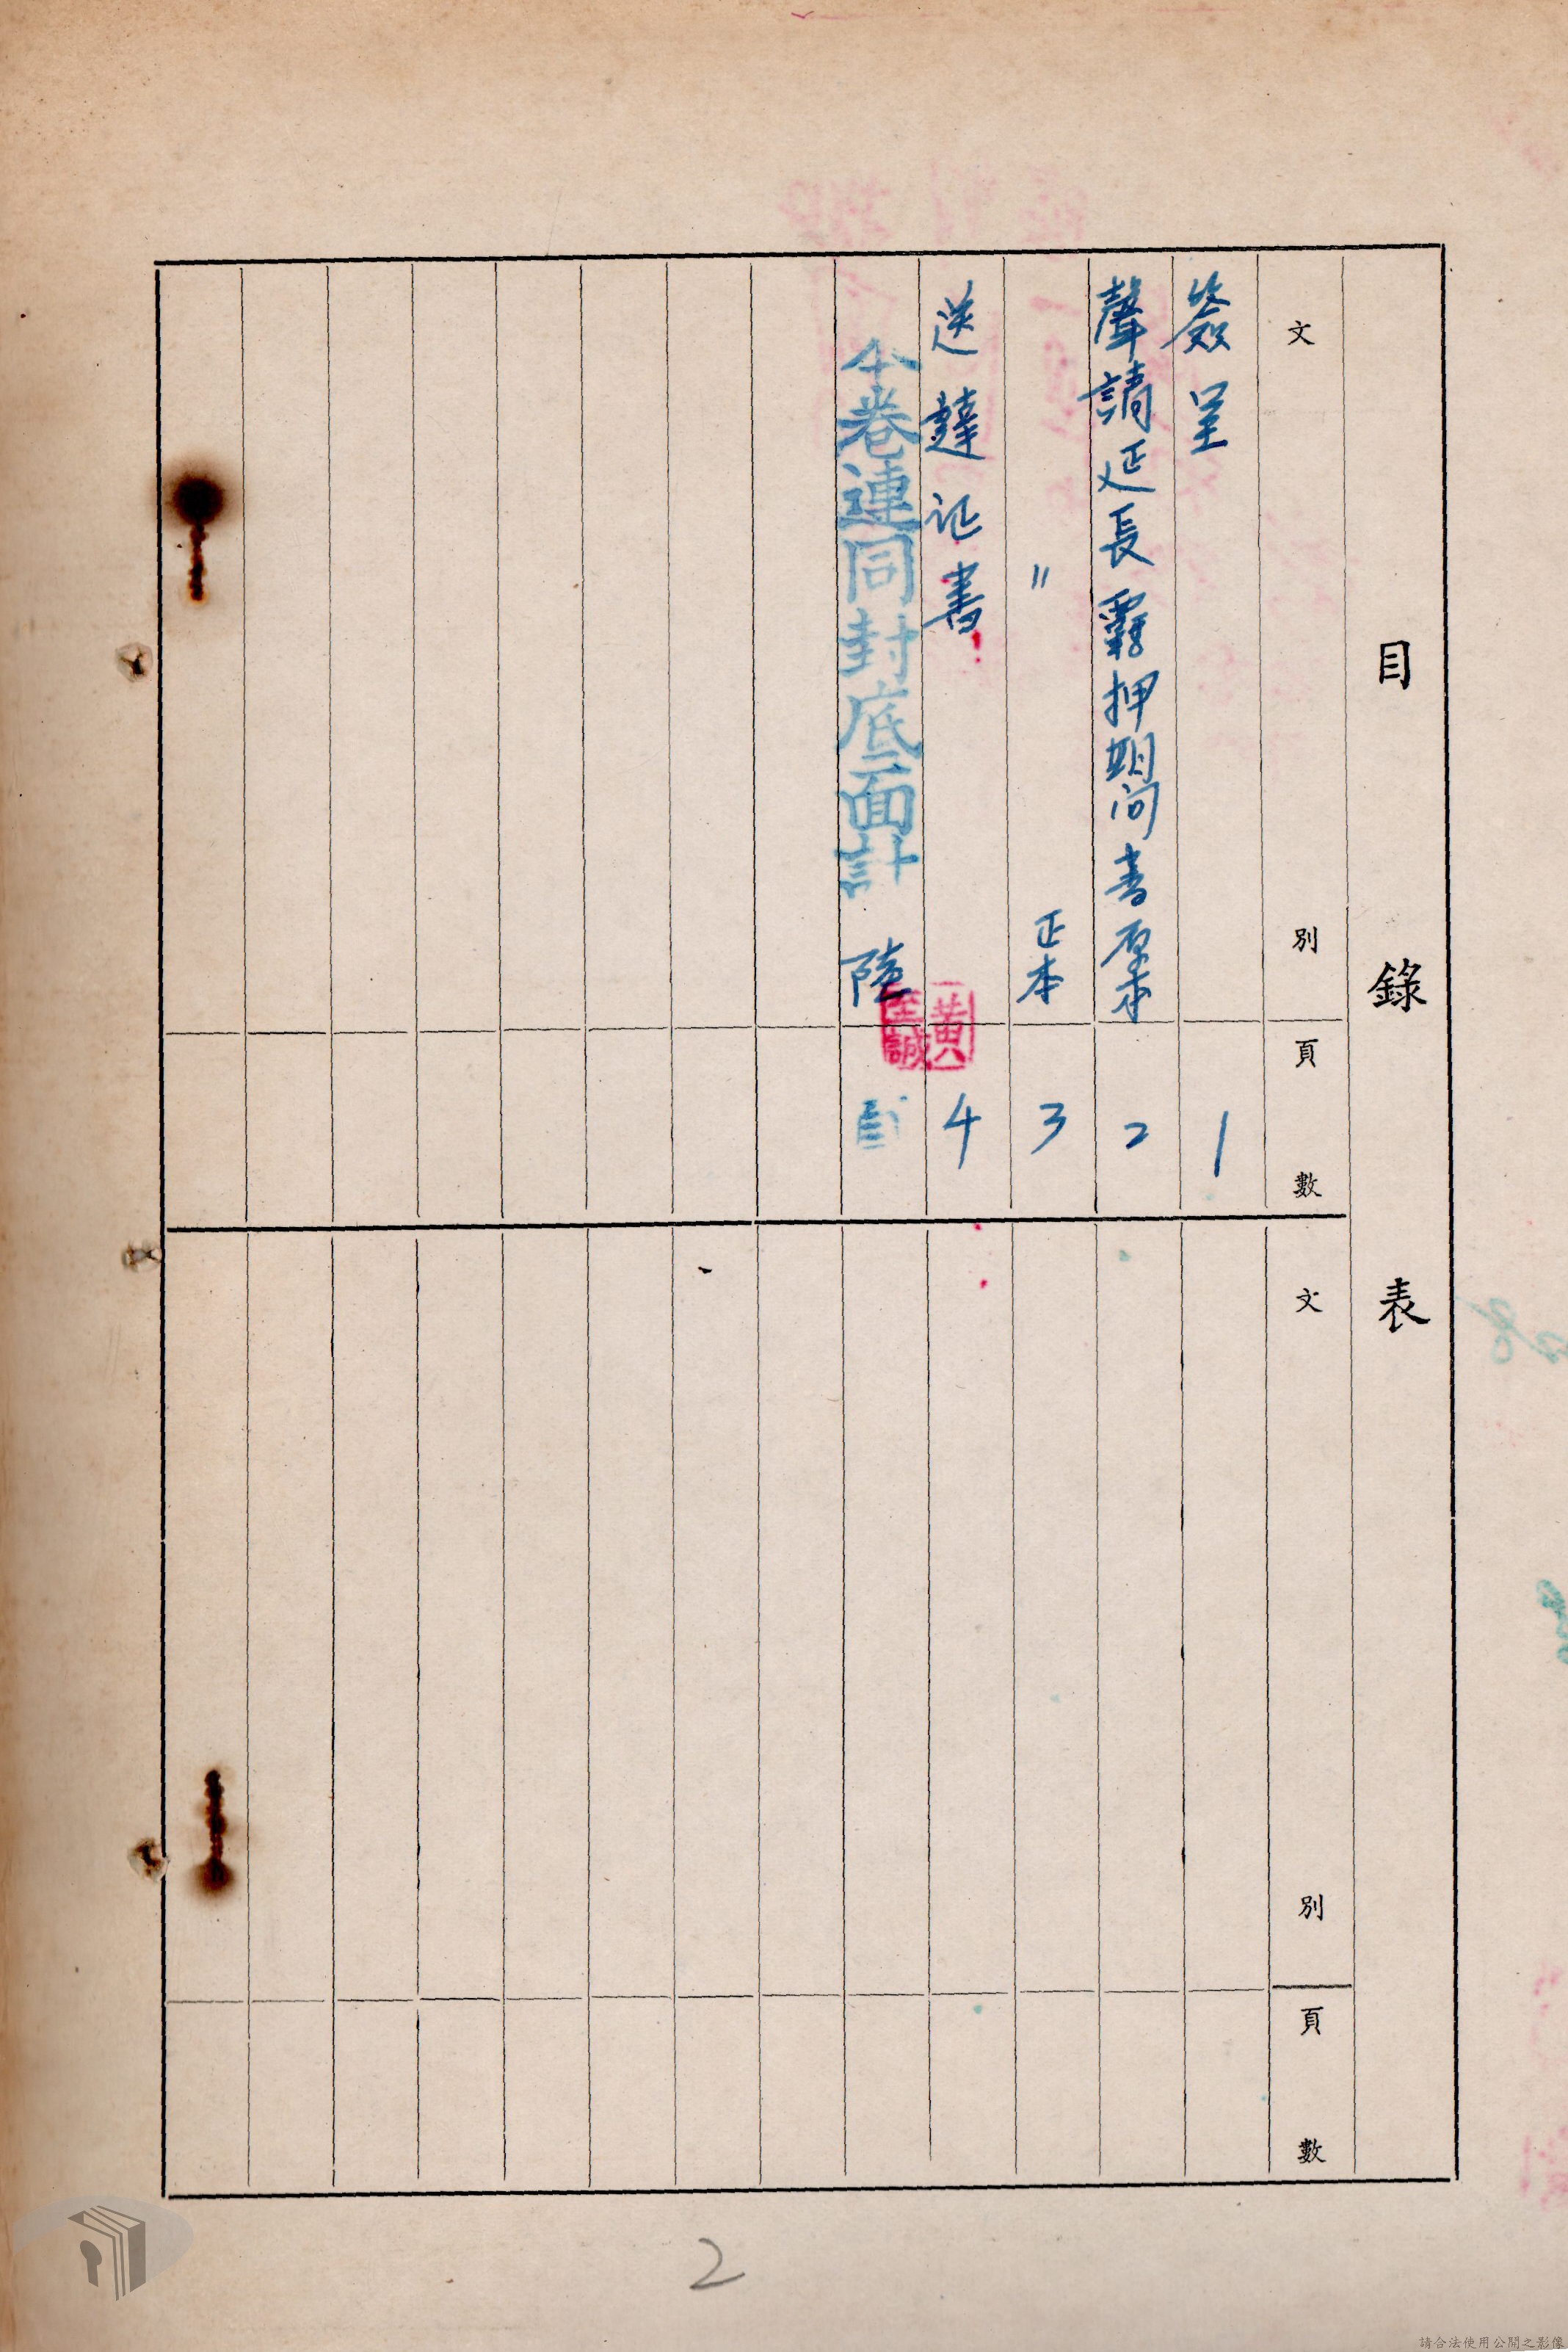 目錄表
文別 頁數
簽呈 1
聲請延長羈押期间書原本 2
〃 正本 3
送達证書 4
本卷連同封底面計陸
黃至誠
文別 頁數
2
請合法使用公開之影像